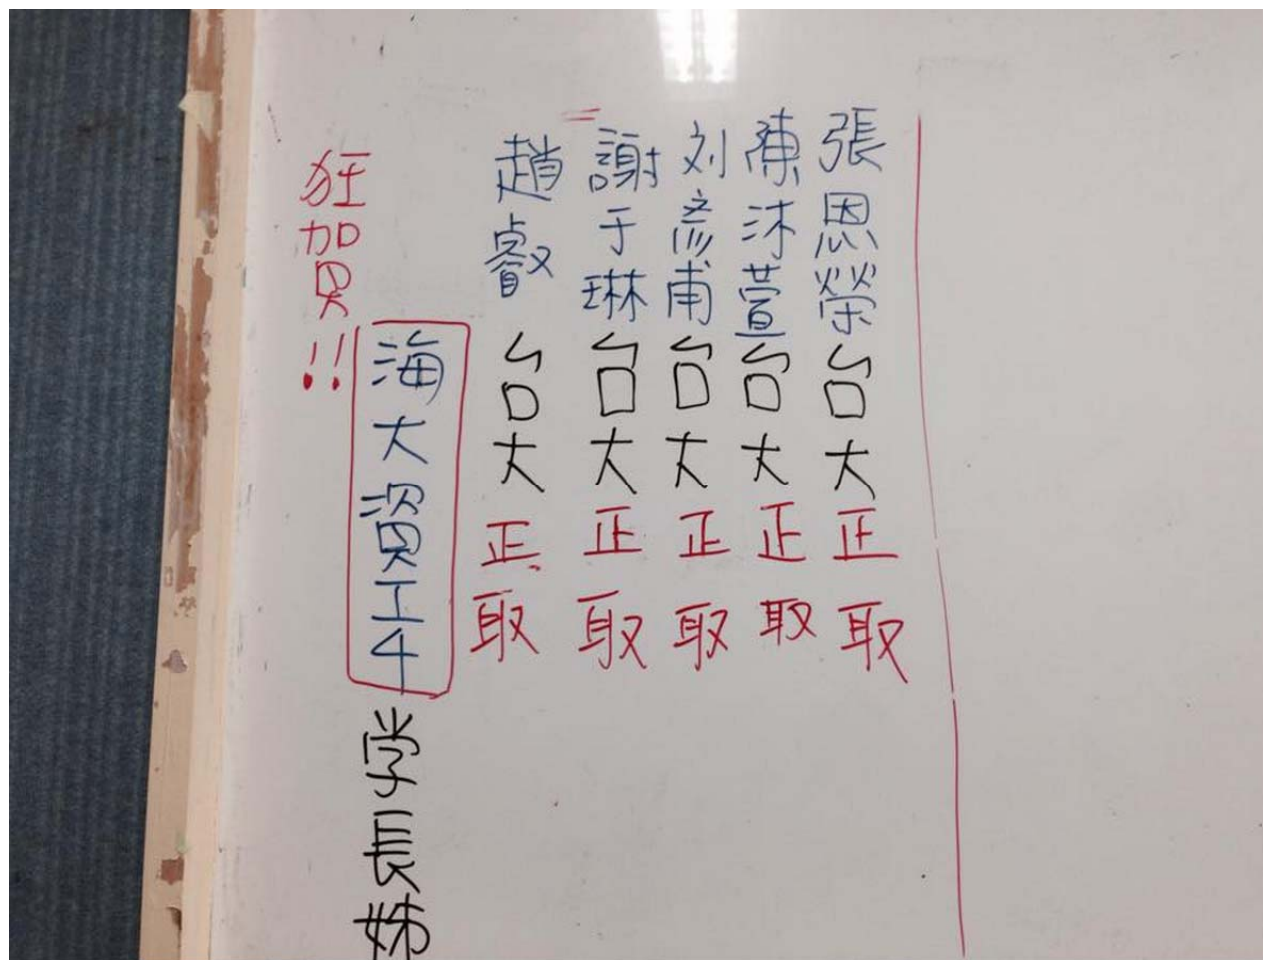 張恩榮台大正取
陳沐萱台大正取
刘彥甫台大正取
謝于琳台大正取
趙叡台大正取
海大資工4学長姊
狂加貝!!